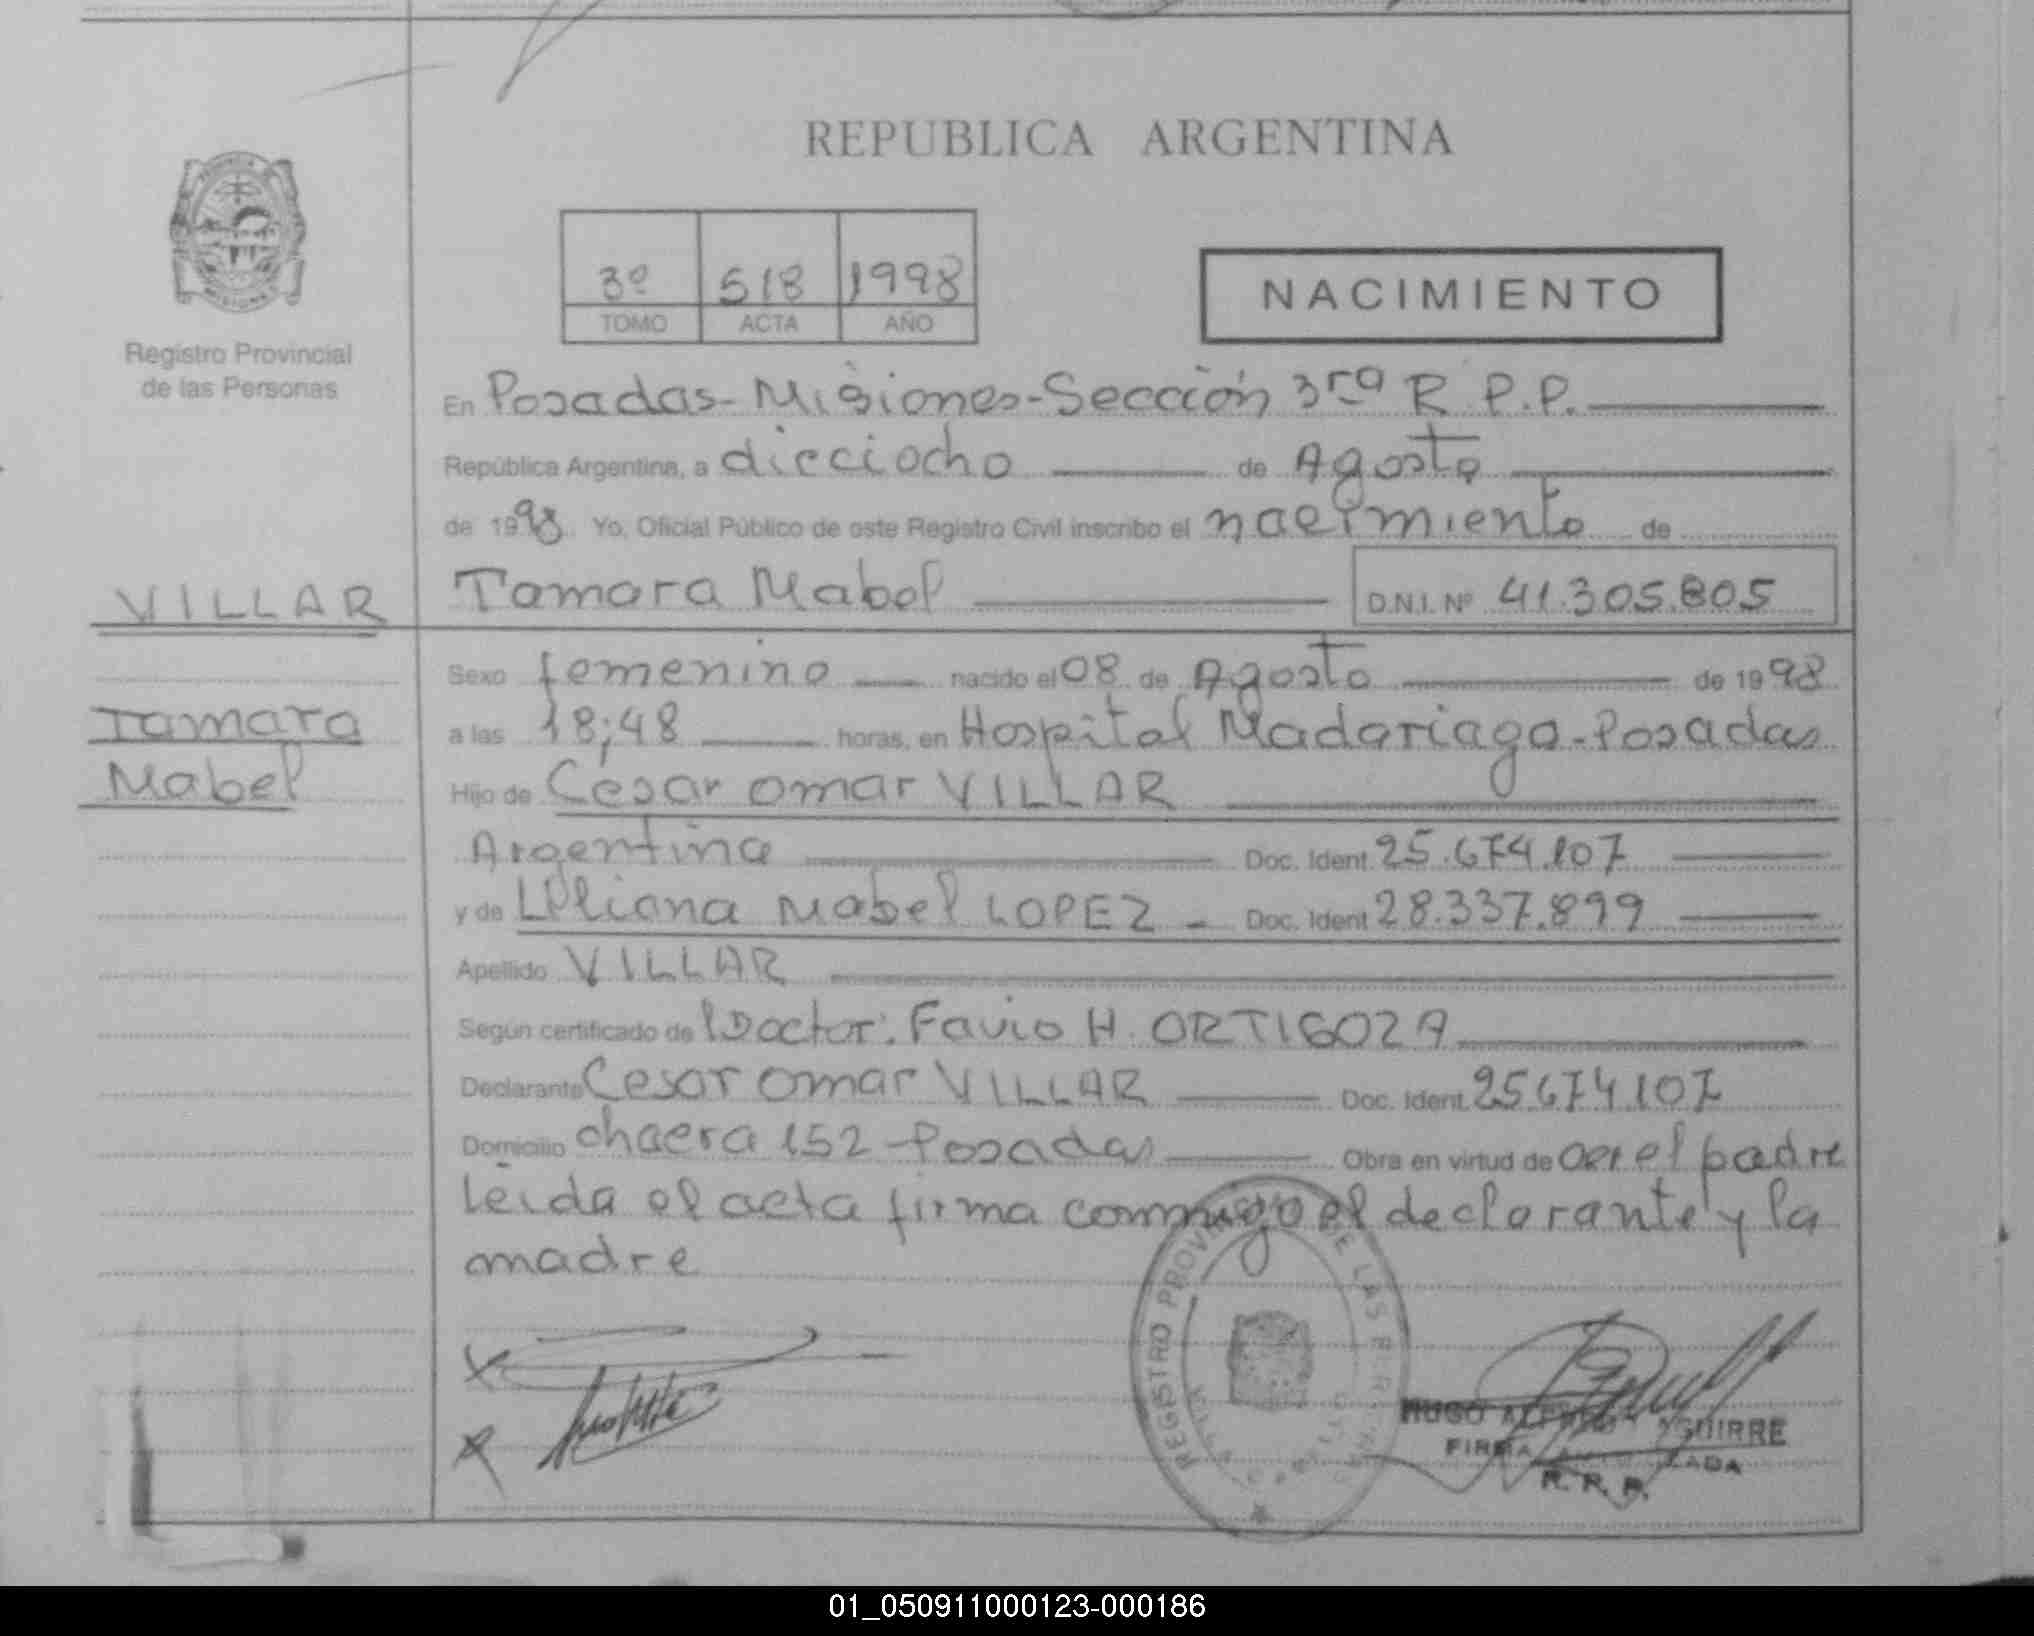 REPUBLICA ARGENTINA
3º 518 1998
TOMO ACTA AÑO
NACIMIENTO
Registro Provincial
de las Personas
En Posadas-Misiones-Sección 3ra R.P.P.
República Argentina, a dieciocho de Agosto
de 1998. Yo, Oficial Público de este Registro Civil inscribo el nacimiento de
VILLAR
Tamara Mabel D.N.I. Nº 41.305.805
Sexo femenino nacido el 08 de Agosto de 1998
Tamara
Mabel
a las 18;48 horas, en Hospital Madariaga-Posadas
Hijo de César Omar VILLAR
Argentina Doc. Ident. 25.674.107
y de Liliana Mabel LOPEZ - Doc. Ident. 28.337.899
Apellido VILLAR
Según certificado de Doctor: Favio H. ORTIGOZA
Declarante Cesar Omar VILLAR Doc. Ident. 25674107
Domicilio chacra 152 - Posadas Obra en virtud de ser el padre
Leida el acta firma conmigo el declarante y la
madre
REGISTRO PROVINCIAL DE LAS PERSONAS
HUGO ALFREDO AGUIRRE
FIRMA AUTORIZADA
R. P. P.
01_050911000123-000186